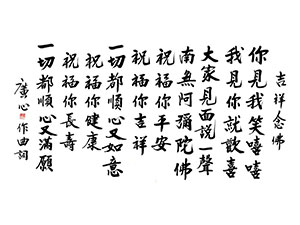 吉祥念佛
你見我笑嘻嘻
我見你就歡喜
大家見面說一聲
南無阿彌陀佛
祝福你平安
祝福你吉祥
一切都順心又如意
祝福你健康
祝福你長壽
一切都順心又滿願
廣心 作曲詞